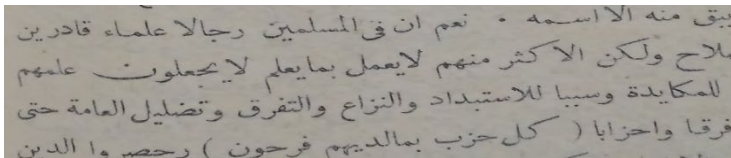 يبق منه الا اسمه . نعم ان فى المسلمين رجالا علماء قادرين
ولكن الاكثر منهم لايعمل بمايعلم لايجعلون علمهم
للمكايدة وسببا للاستبداد والنزاع والتفرق وتضليل العامة حتى
فرقا واحزابا ( كل حزب بمالديهم فرحون ) الدين